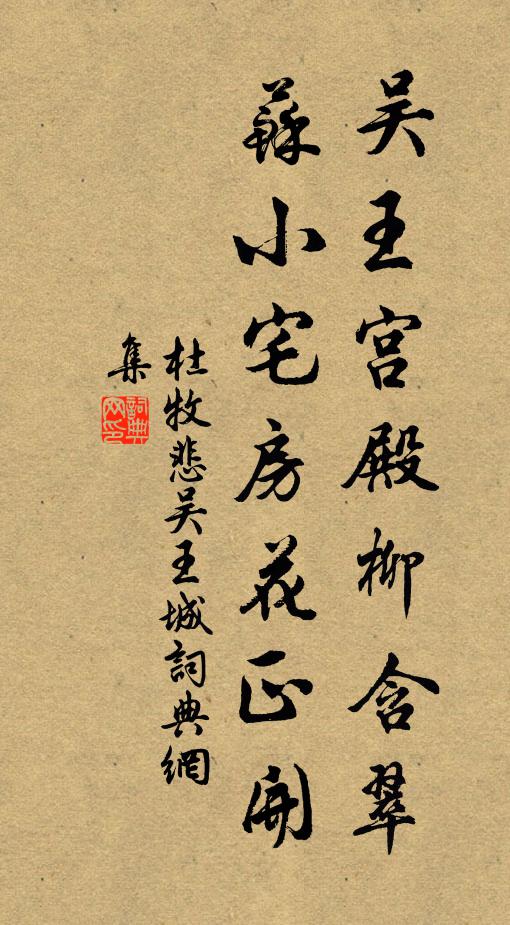 吴王宫殿柳含翠
蘇小宅房花正開
杜牧悲吴王城詞典網
集
詞典網印